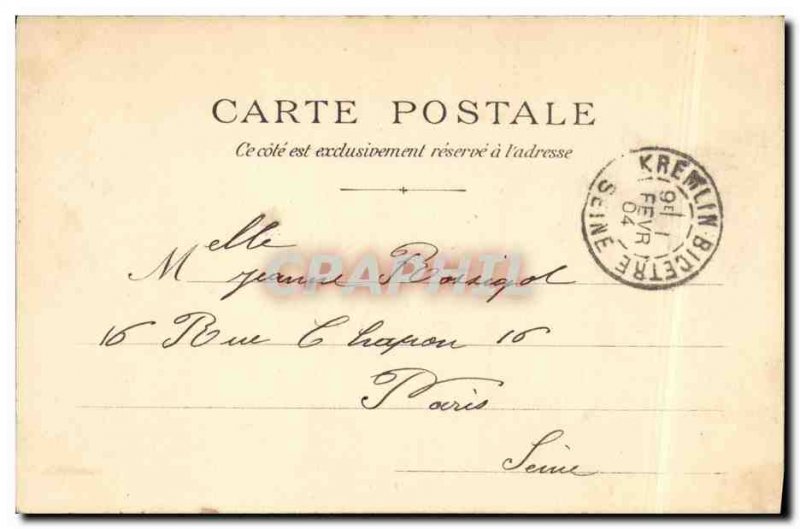 CARTE POSTALE
Ce côté est exclusivement réservé à l'adresse
KREMLIN-BICETRE
SEINE
9E 1
FEVR
04
CPAPHIL
Melle
Jeanne Rossigol
16 Rue Chapon 16
Paris
Seine